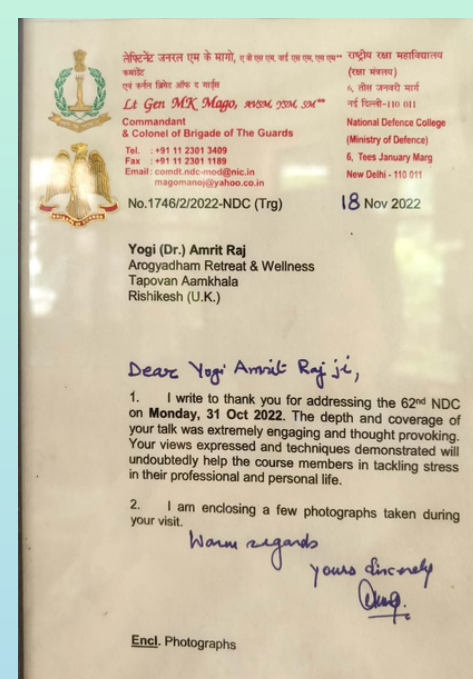 लेफ्टिनेंट जनरल एम के मागो, ए वी एस एम, वाई एस एम, एस एम**
कमांडेंट
एवं कर्नल ब्रिगेड ऑफ द गार्ड्स
Lt Gen MK Mago, AVSM, YSM, SM**
Commandant
& Colonel of Brigade of The Guards
Tel. : +91 11 2301 3409
Fax : +91 11 2301 1189
Email : comdt.ndc-mod@nic.in
magomanoj@yahoo.co.in
राष्ट्रीय रक्षा महाविद्यालय
(रक्षा मंत्रालय)
6, तीस जनवरी मार्ग
नई दिल्ली-110 011
National Defence College
(Ministry of Defence)
6, Tees January Marg
New Delhi - 110 011
No.1746/2/2022-NDC (Trg) 18 Nov 2022
Yogi (Dr.) Amrit Raj
Arogyadham Retreat & Wellness
Tapovan Aamkhala
Rishikesh (U.K.)
Dear Yogi Amrit Raj ji,
1. I write to thank you for addressing the 62nd NDC
on Monday, 31 Oct 2022. The depth and coverage of
your talk was extremely engaging and thought provoking.
Your views expressed and techniques demonstrated will
undoubtedly help the course members in tackling stress
in their professional and personal life.
2. I am enclosing a few photographs taken during
your visit.
Warm regards
Yours Sincerely
Encl. Photographs